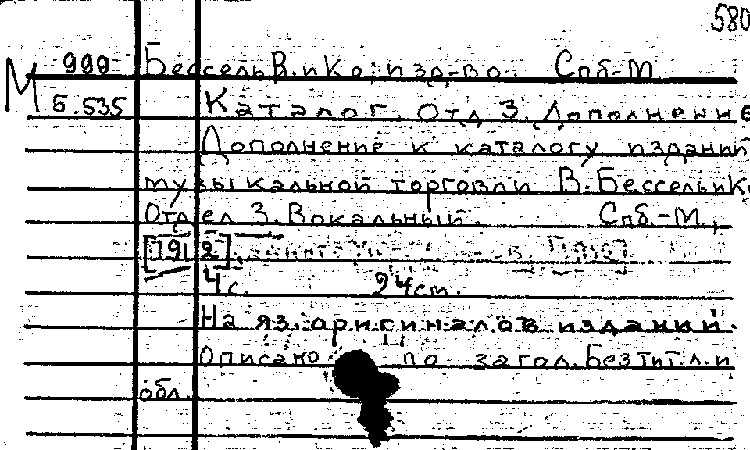 580
М 900 Бессель В. и Ко, изд-во. Спб-М
Б.535 Каталог. Отд 3. Дополнение
Дополнение к каталогу изданий
музыкальной торговли В. Бессель и Ко
Отдел 3. Вокальный. Спб.-М.,
[1912],
4 с. 24 см.
На яз. оригиналов изданий.
Описано по загол. Без тит. л. и
обл.